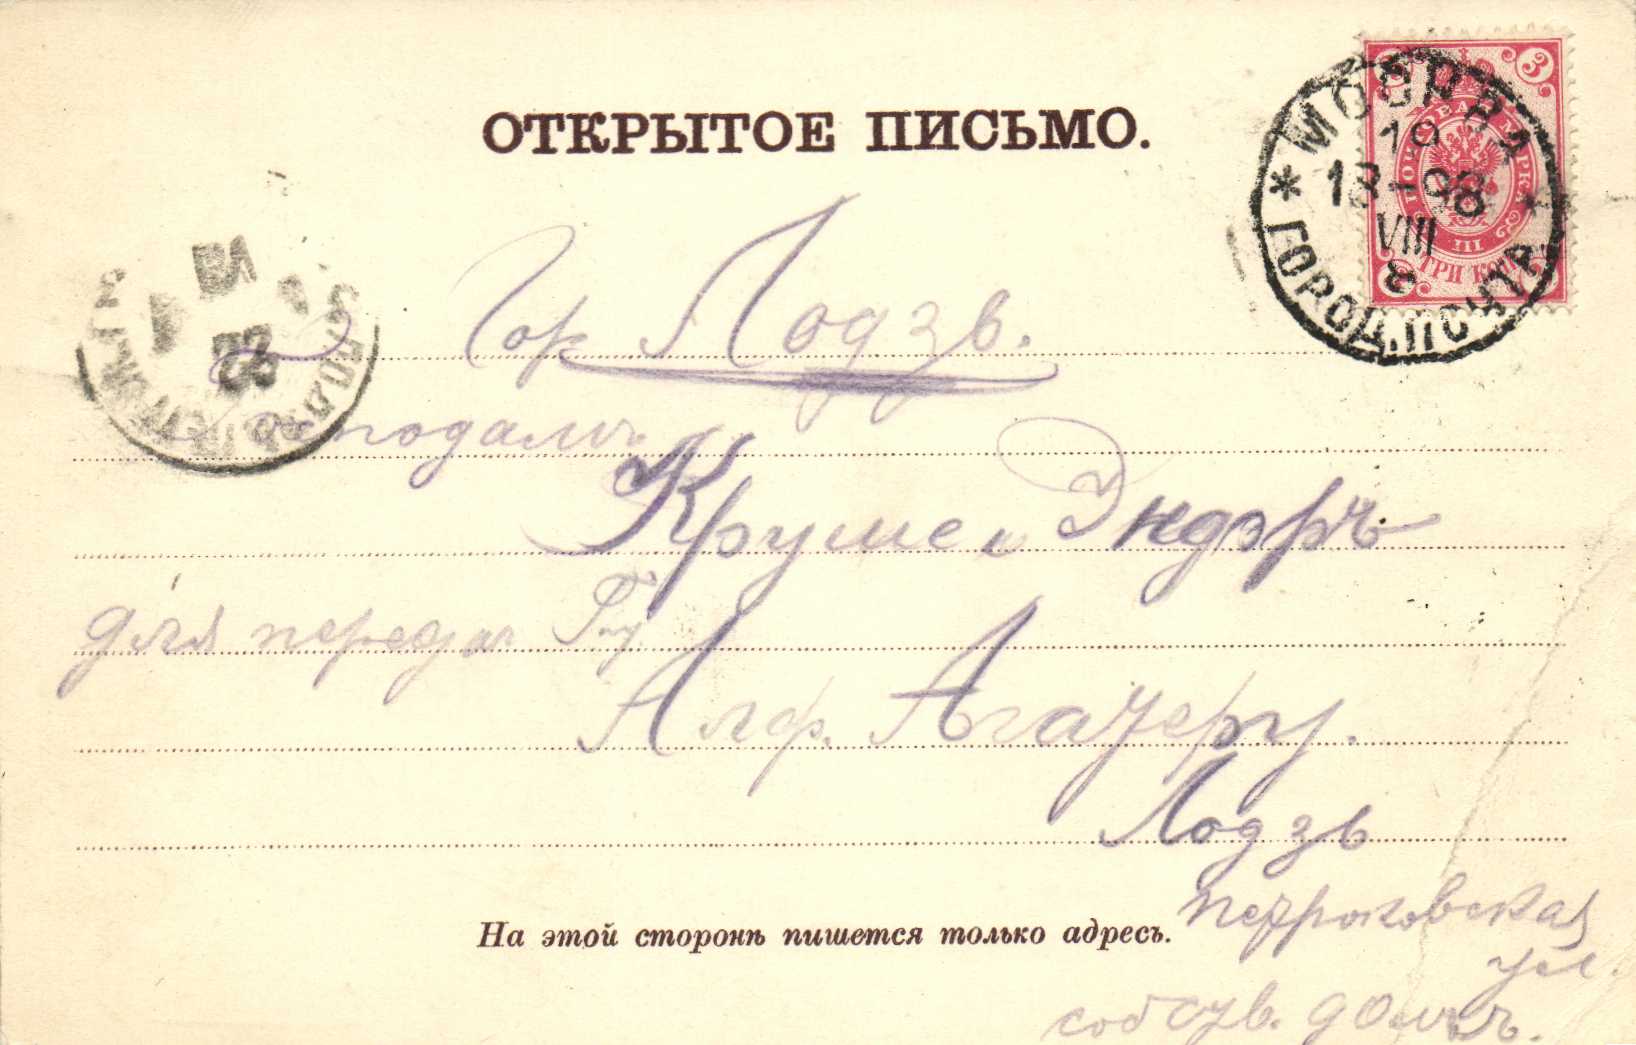 ОТКРЫТОЕ ПИСЬМО.
МОСКВА
19
18-98
VIII
8
ГОРОД. ПОЧТА
3
ПОЧТОВАЯ МАРКА
III
ТРИ КОП.
VIII
22
Гор Лодзь.
Господамъ
Круше и Эндэръ
для передачи Г-ну
Алф.
Лодзь
петроковская
ул.
собств. домъ.
На этой сторонѣ пишется только адресъ.